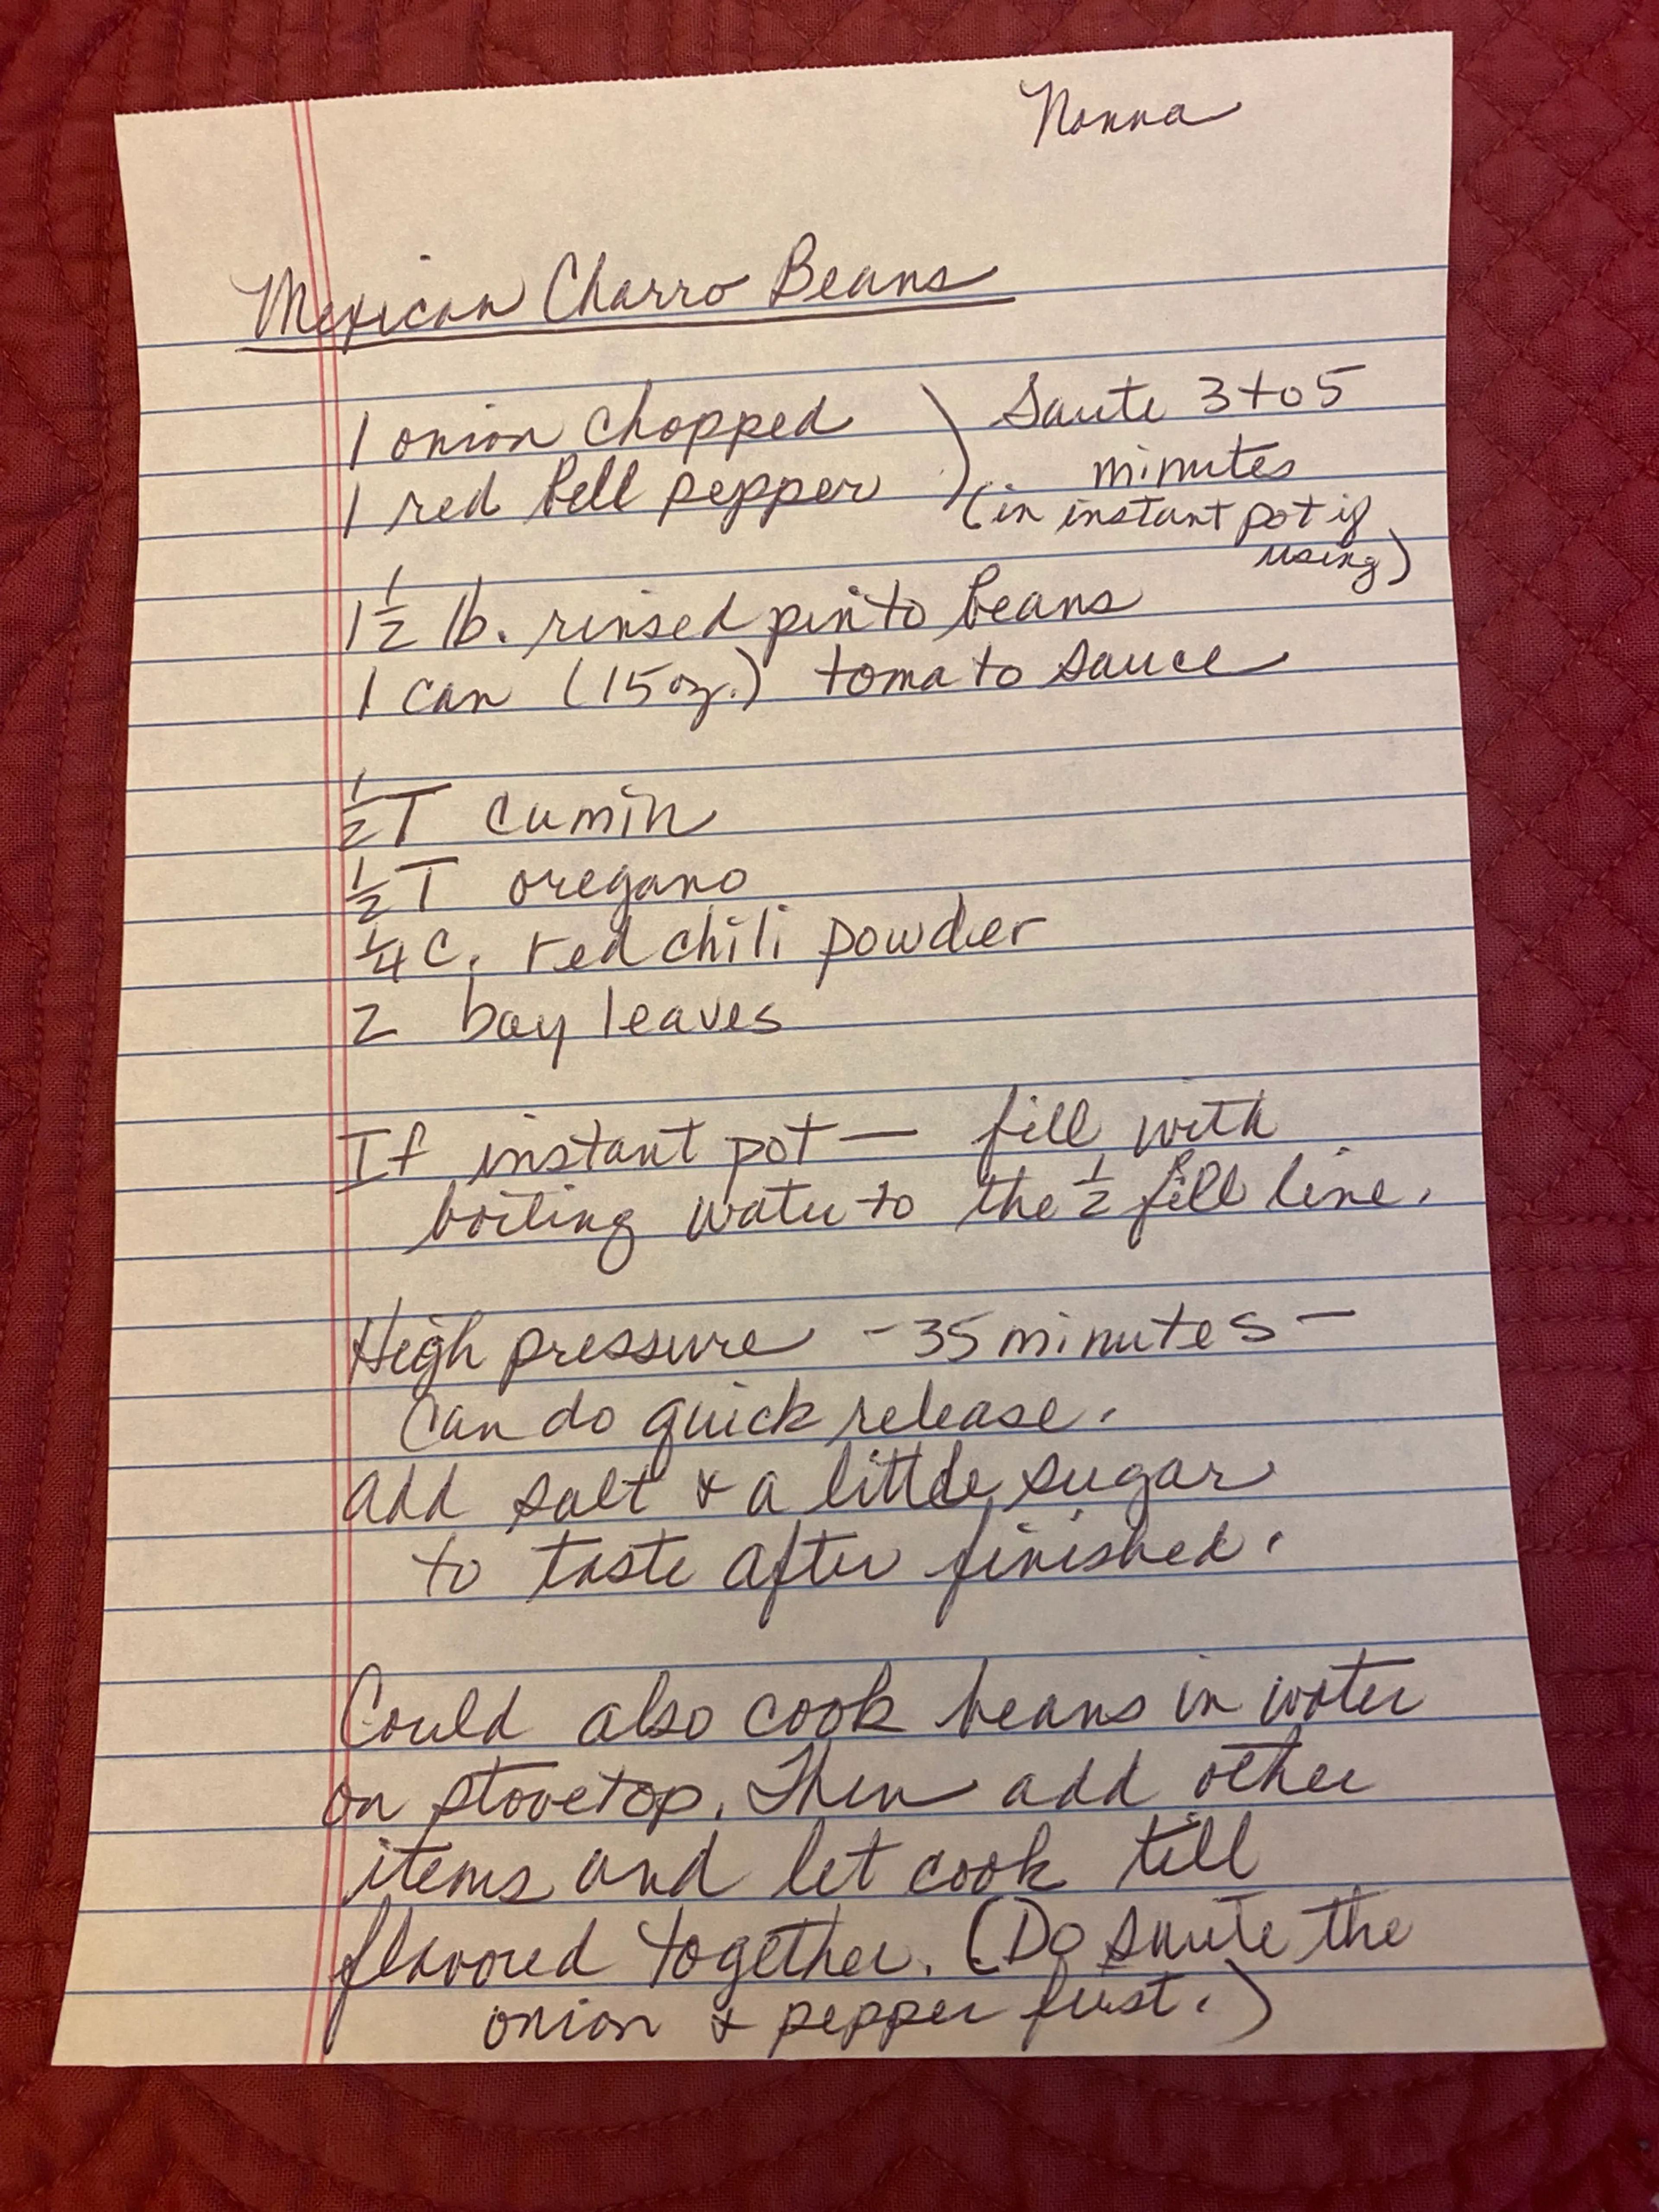 Nonna
Mexican Charro Beans
1 onion chopped ) Saute 3 to 5
1 red bell pepper ) minutes
(in instant pot if
using)
1 1/2 lb. rinsed pinto beans
1 can (15 oz.) tomato sauce
1/2 T cumin
1/2 T oregano
1/4 c. red chili powder
2 bay leaves
If instant pot — fill with
boiling water to the 1/2 fill line.
High pressure - 35 minutes -
Can do quick release.
add salt & a little sugar
to taste after finished.
Could also cook beans in water
on stovetop. Then add other
items and let cook till
flavored together. (Do saute the
onion & pepper first.)